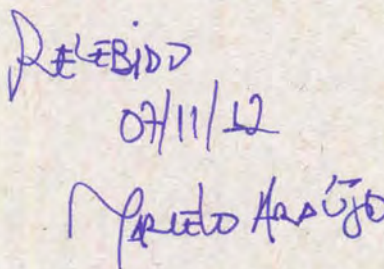 RECEBIDO
07/11/12
MARCELO ARAÚJO